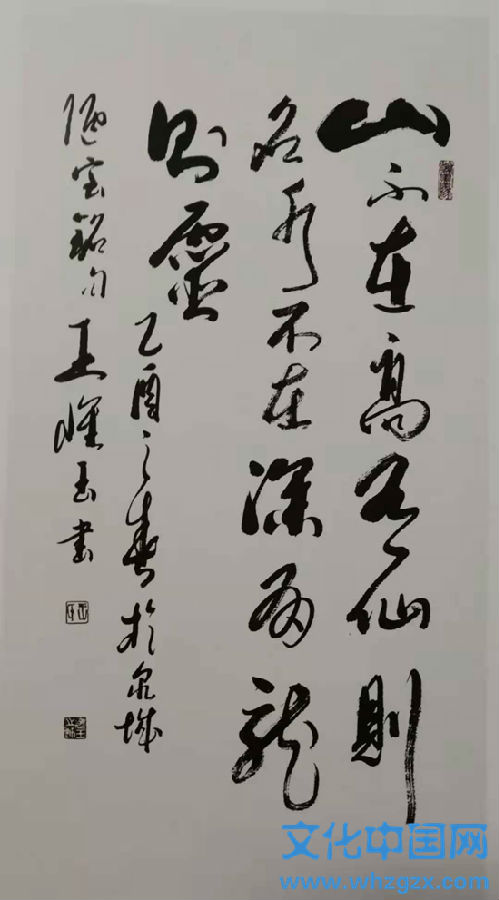 山不在高有仙則
名水不在深有龍
則靈
乙酉之春於泉城
陋室銘句 王玉書
文化中国网
www.whzgzx.com